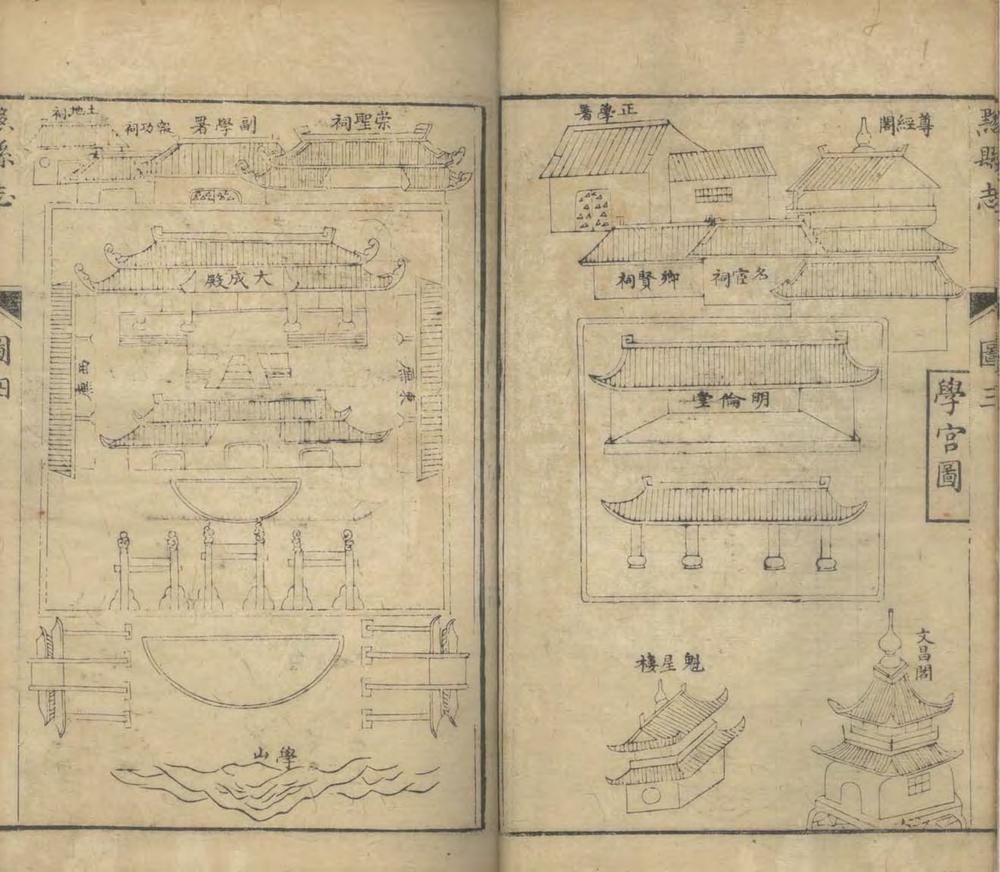 黟縣志
圖三
學宮圖
尊經閣
正學署
名宦祠
鄉賢祠
明倫堂
文昌閣
魁星樓
崇聖祠
副學署
報功祠
土地祠
大成殿
東廡
西廡
學山
圖四